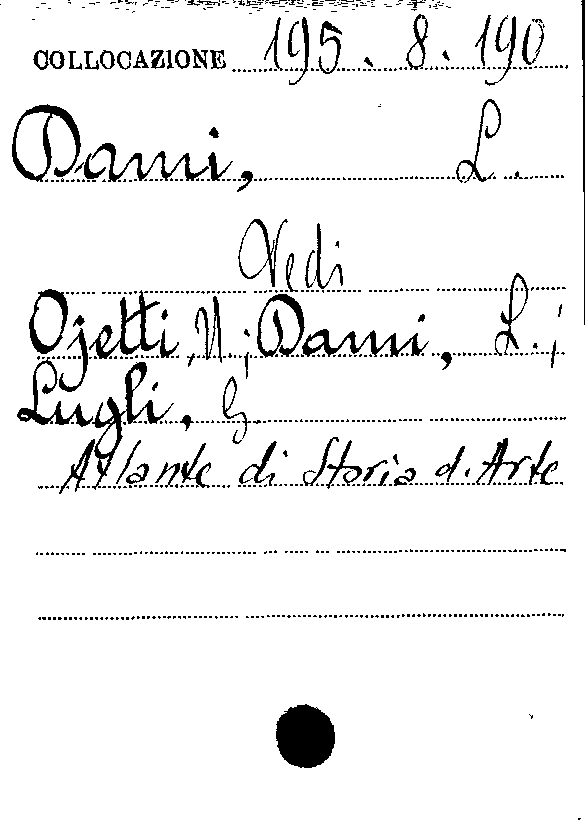 COLLOCAZIONE 195. 8. 190
Dami, L.
Vedi
Ojetti, U.; Dami, L.;
Lugli, G.
Atlante di Storia d. Arte